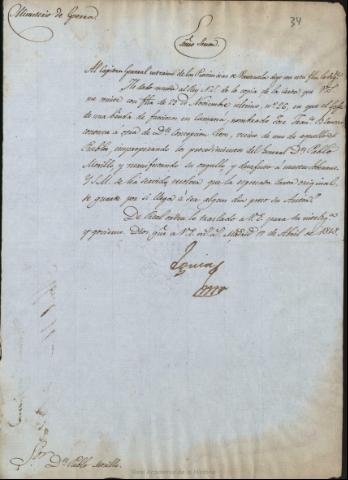 Ministerio de Guerra
34
Exmo. Señor
Al Capitan General interino de las Provincias de Venezuela digo con esta fha. lo sigte.
He dado cuenta al Rey N.S. de la copia de la carta que V.E.
me remite con fha. de 22 de Noviembre ultimo, nº 26, en que el Gefe
de una banda de facciosos en Cumaná, nombrado José Fran.co
contexta a otra de Dª Concepcion, vecina de uno de aquellos
Pueblos, improperando los procedimientos del General Dn. Pablo
Morillo y manifestando su orgullo, y
Y S.M. se ha servido resolver que la expresada carta original,
se guarde por si llega á ser algun dia preso su Autor.
De Real orden lo traslado a V.E. para su inteligª
y govierno. Dios gue. a V.E. ms. as. Madrid 17 de Abril de 1818.
Eguia
Sor. Dn. Pablo Morillo.
Real Academia de la Historia